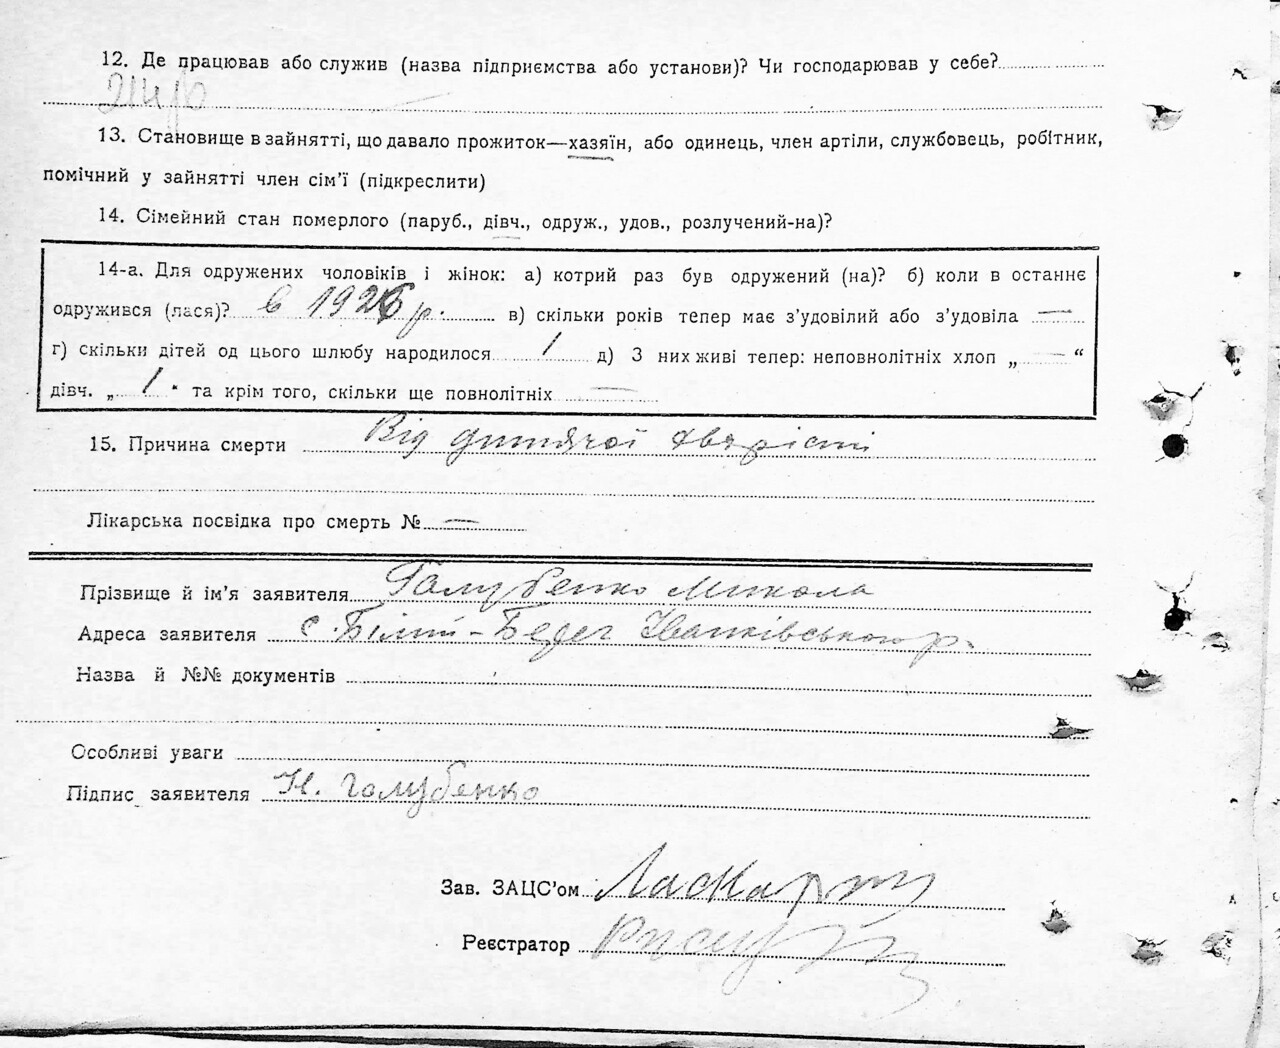 12. Де працював або служив (назва підприємства або установи)? Чи господарював у себе?
13. Становище в зайнятті, що давало прожиток—хазяїн, або одинець, член артіли, службовець, робітник,
помічний у зайнятті член сім'ї (підкреслити)
14. Сімейний стан померлого (паруб., дівч., одруж., удов., розлучений-на)?
14-а. Для одружених чоловіків і жінок: а) котрий раз був одружений (на)? б) коли в останнє
одружився (лася)? в 1926 р. в) скільки років тепер має з'удовілий або з'удовіла —
г) скільки дітей од цього шлюбу народилося 1 д) З них живі тепер: неповнолітніх хлоп „ — “
дівч. „ 1 " та крім того, скільки ще повнолітніх —
15. Причина смерти Від дитячої хворісті
Лікарська посвідка про смерть № —
Прізвище й ім'я заявителя Голубенко Микола
Адреса заявителя с. Білий-Берег Іванківського р.
Назва й №№ документів
Особливі уваги
Підпис заявителя Н. Голубенко
Зав. ЗАЦС'ом
Реєстратор